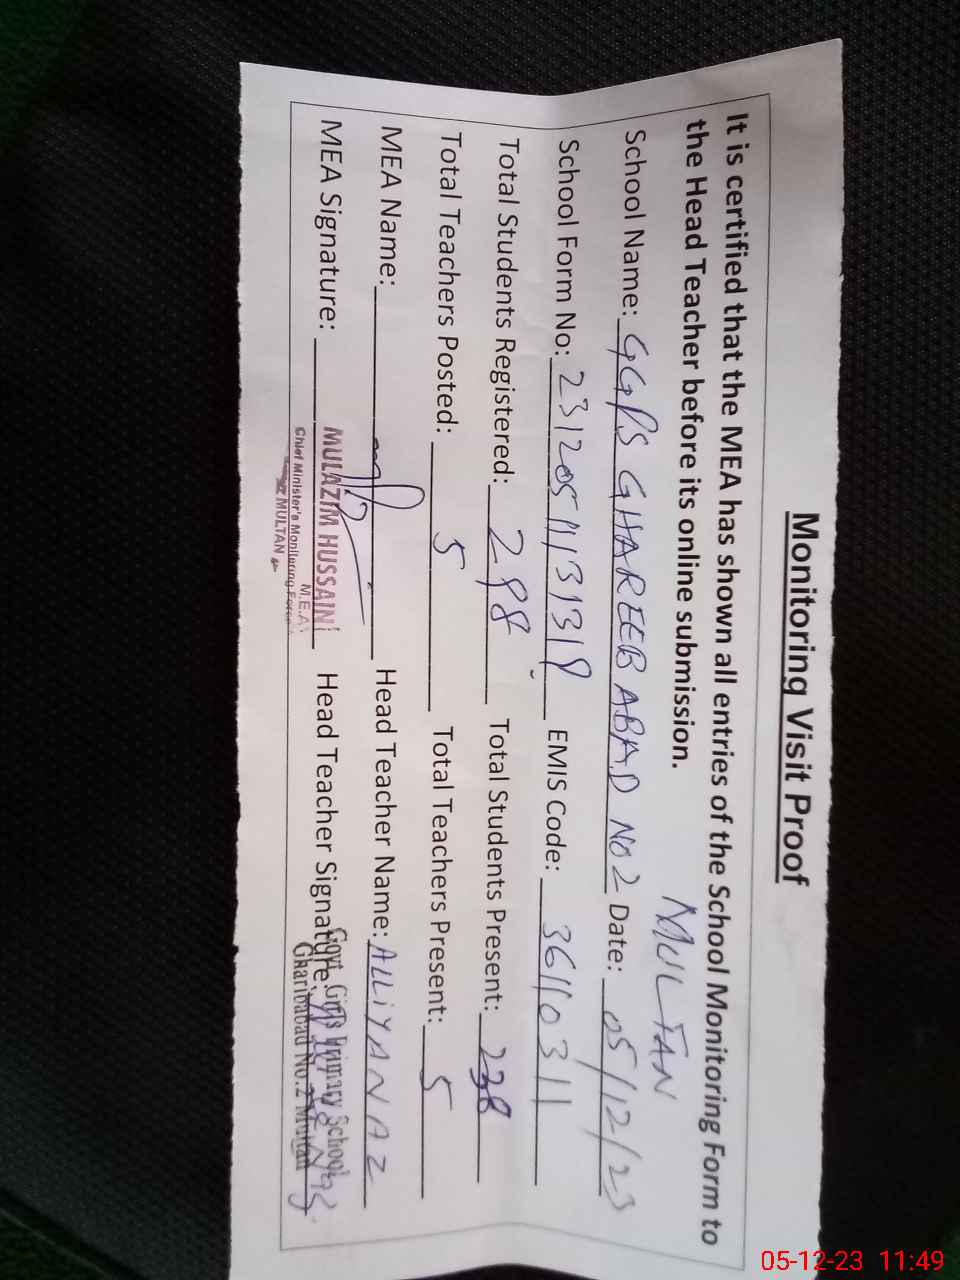 Monitoring Visit Proof
It is certified that the MEA has shown all entries of the School Monitoring Form to
the Head Teacher before its online submission.
MULTAN
School Name: GGPS GHAREEB ABAD NO 2 Date: 05/12/23
School Form No: EMIS Code: 36110311
Total Students Registered: 298 Total Students Present: 238
Total Teachers Posted: 5 Total Teachers Present: 5
MEA Name: Head Teacher Name: ALLIYA NAZ
MEA Signature: MULAZIM HUSSAIN Head Teacher Signature:
M.E.A
Chief Minister's Monitoring Force
MULTAN
Govt. Girls Primary School
Gharibabad No.2 Multan
05-12-23 11:49